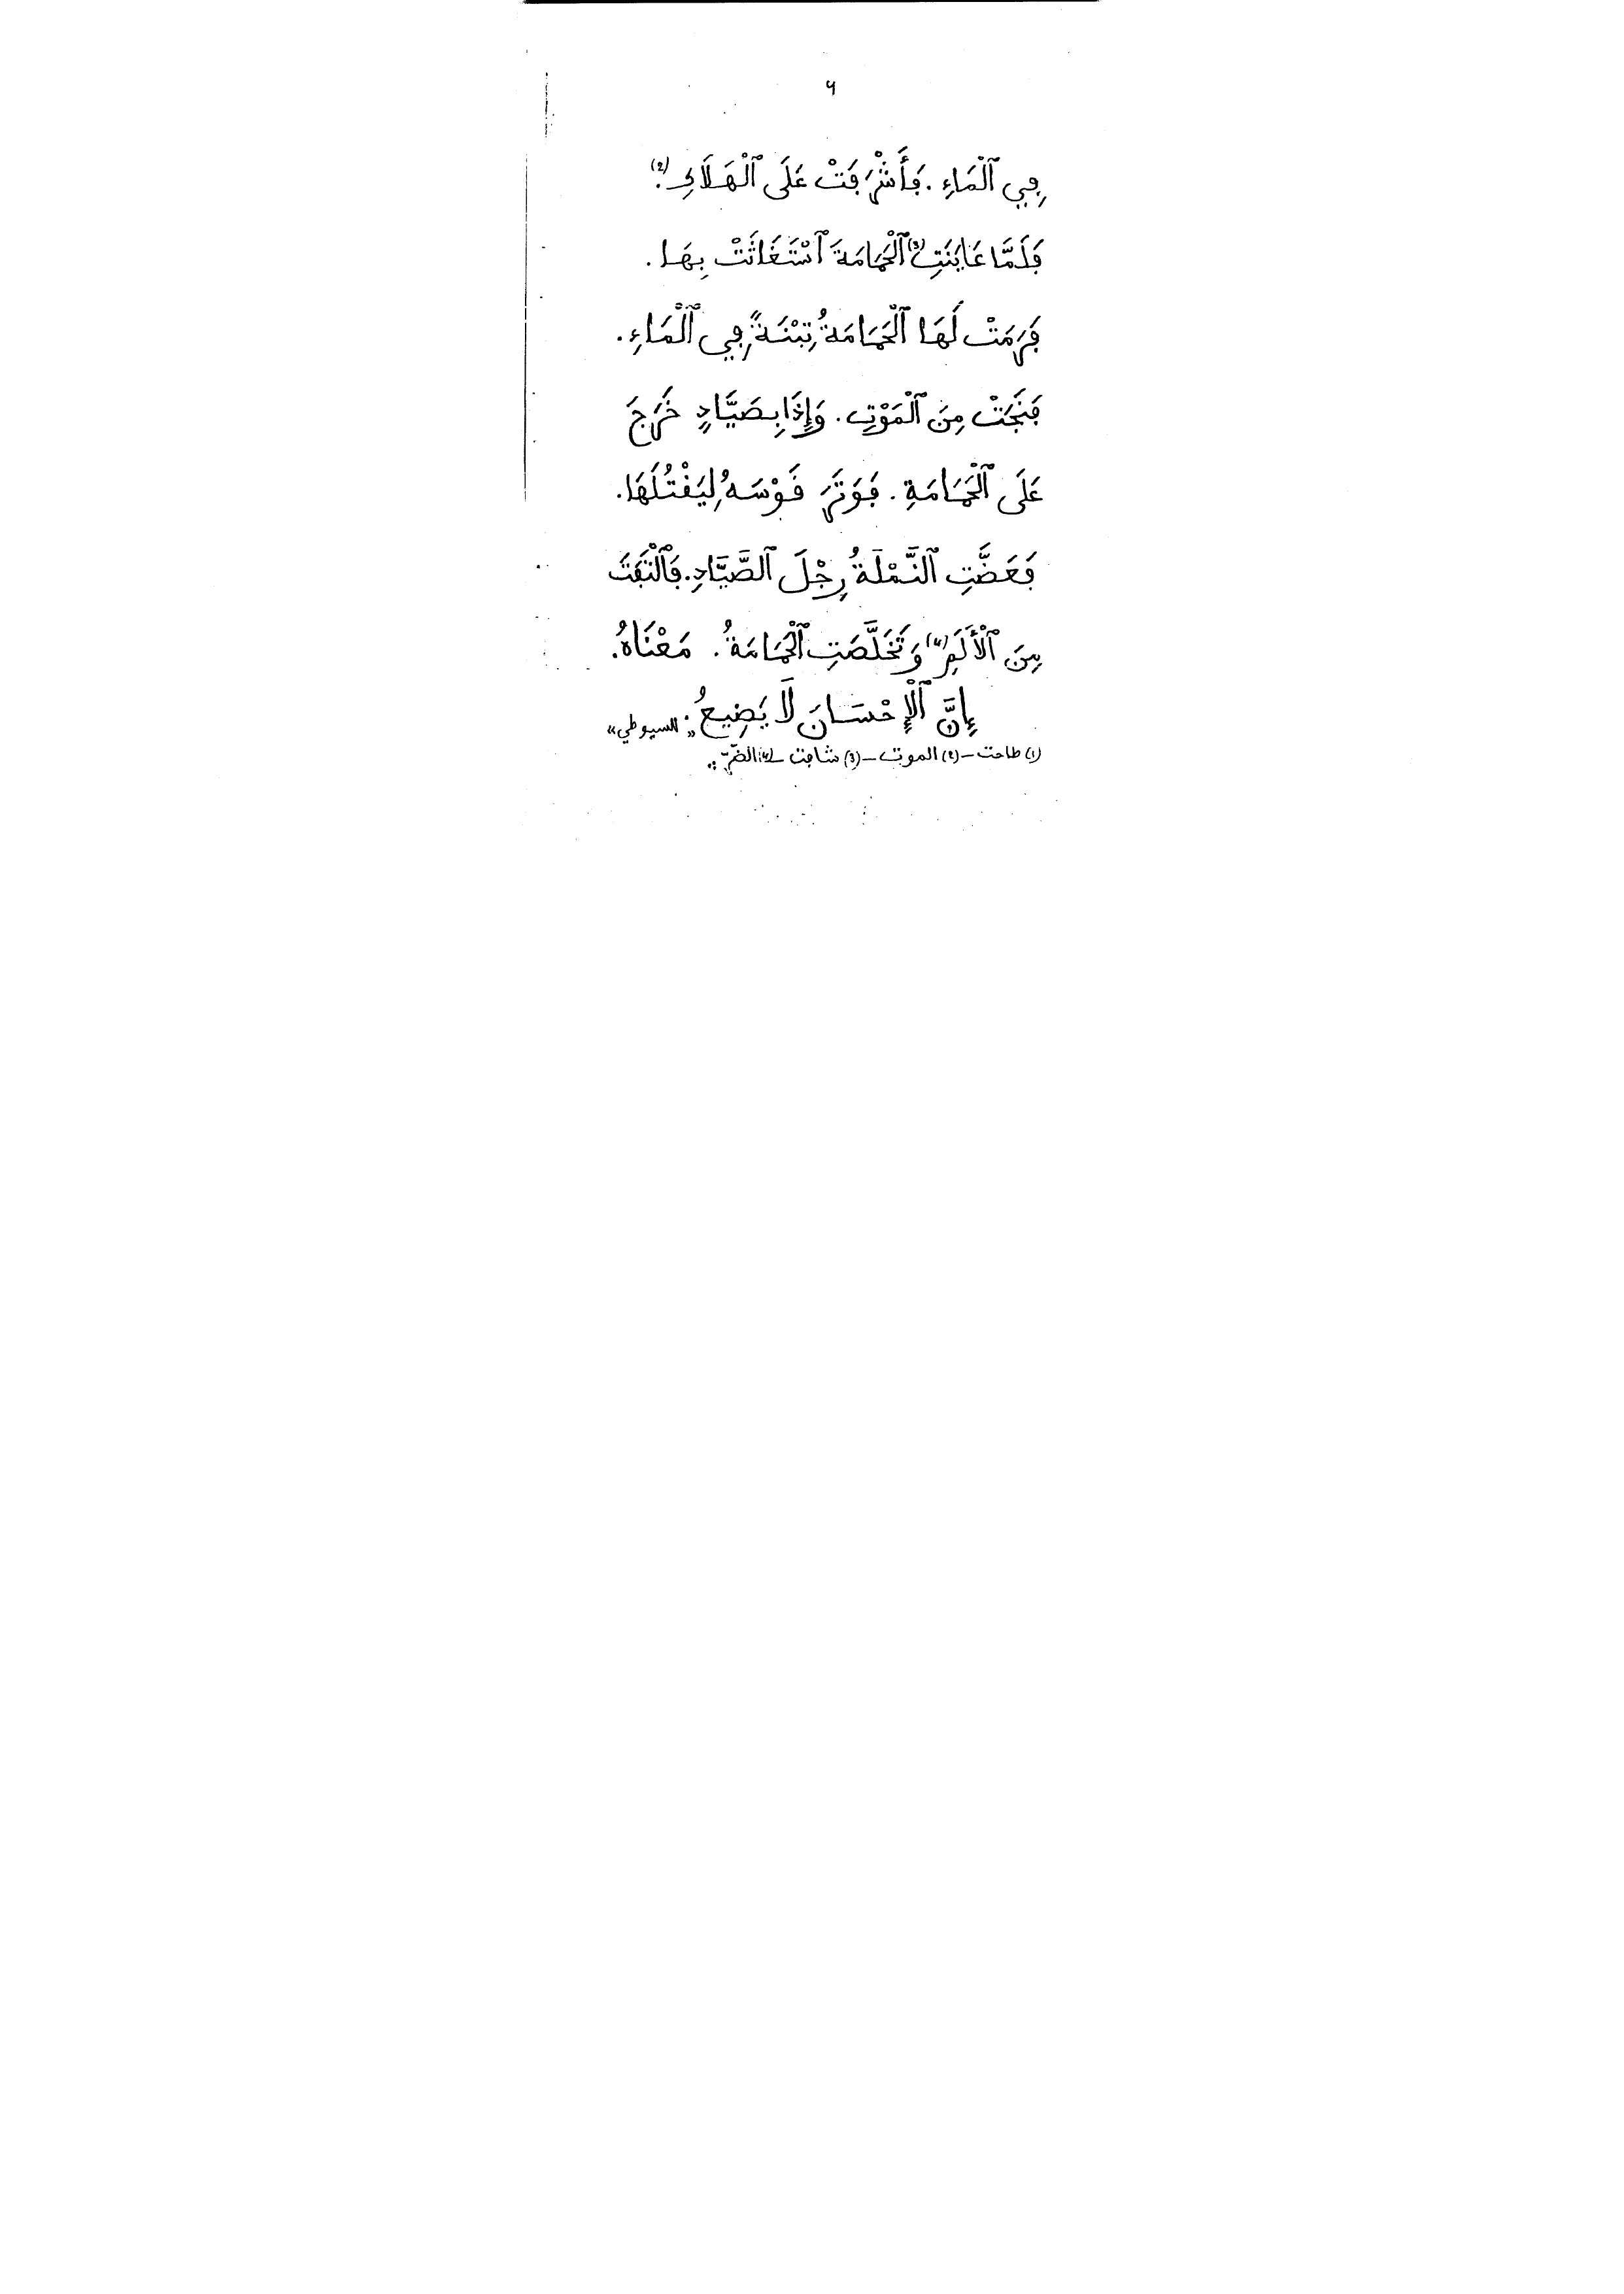 ٩
فِي ٱلْمَاءِ. فَأَشْرَفَتْ عَلَى ٱلْهَلَاكِ (2).
فَلَمَّا عَايَنَتِ (3) ٱلْحَمَامَةَ ٱسْتَغَاثَتْ بِهَا.
فَرَمَتْ لَهَا ٱلْحَمَامَةُ تِبْنَةً فِي ٱلْمَاءِ.
فَنَجَتْ مِنَ ٱلْمَوْتِ. وَإِذَا بِصَيَّادٍ خَرَجَ
عَلَى ٱلْحَمَامَةِ. فَوَتَرَ قَوْسَهُ لِيَقْتُلَهَا.
فَعَضَّتِ ٱلنَّمْلَةُ رِجْلَ ٱلصَّيَّادِ. فَٱلْتَفَتَ
مِنَ ٱلْأَلَمِ (4) وَتَخَلَّصَتِ ٱلْحَمَامَةُ. مَعْنَاهُ.
إِنَّ ٱلْإِحْسَانَ لَا يَضِيعُ: "السيوطي"
(1) طاحت – (2) الموت – (3) شافت – (4) الضّرّ..